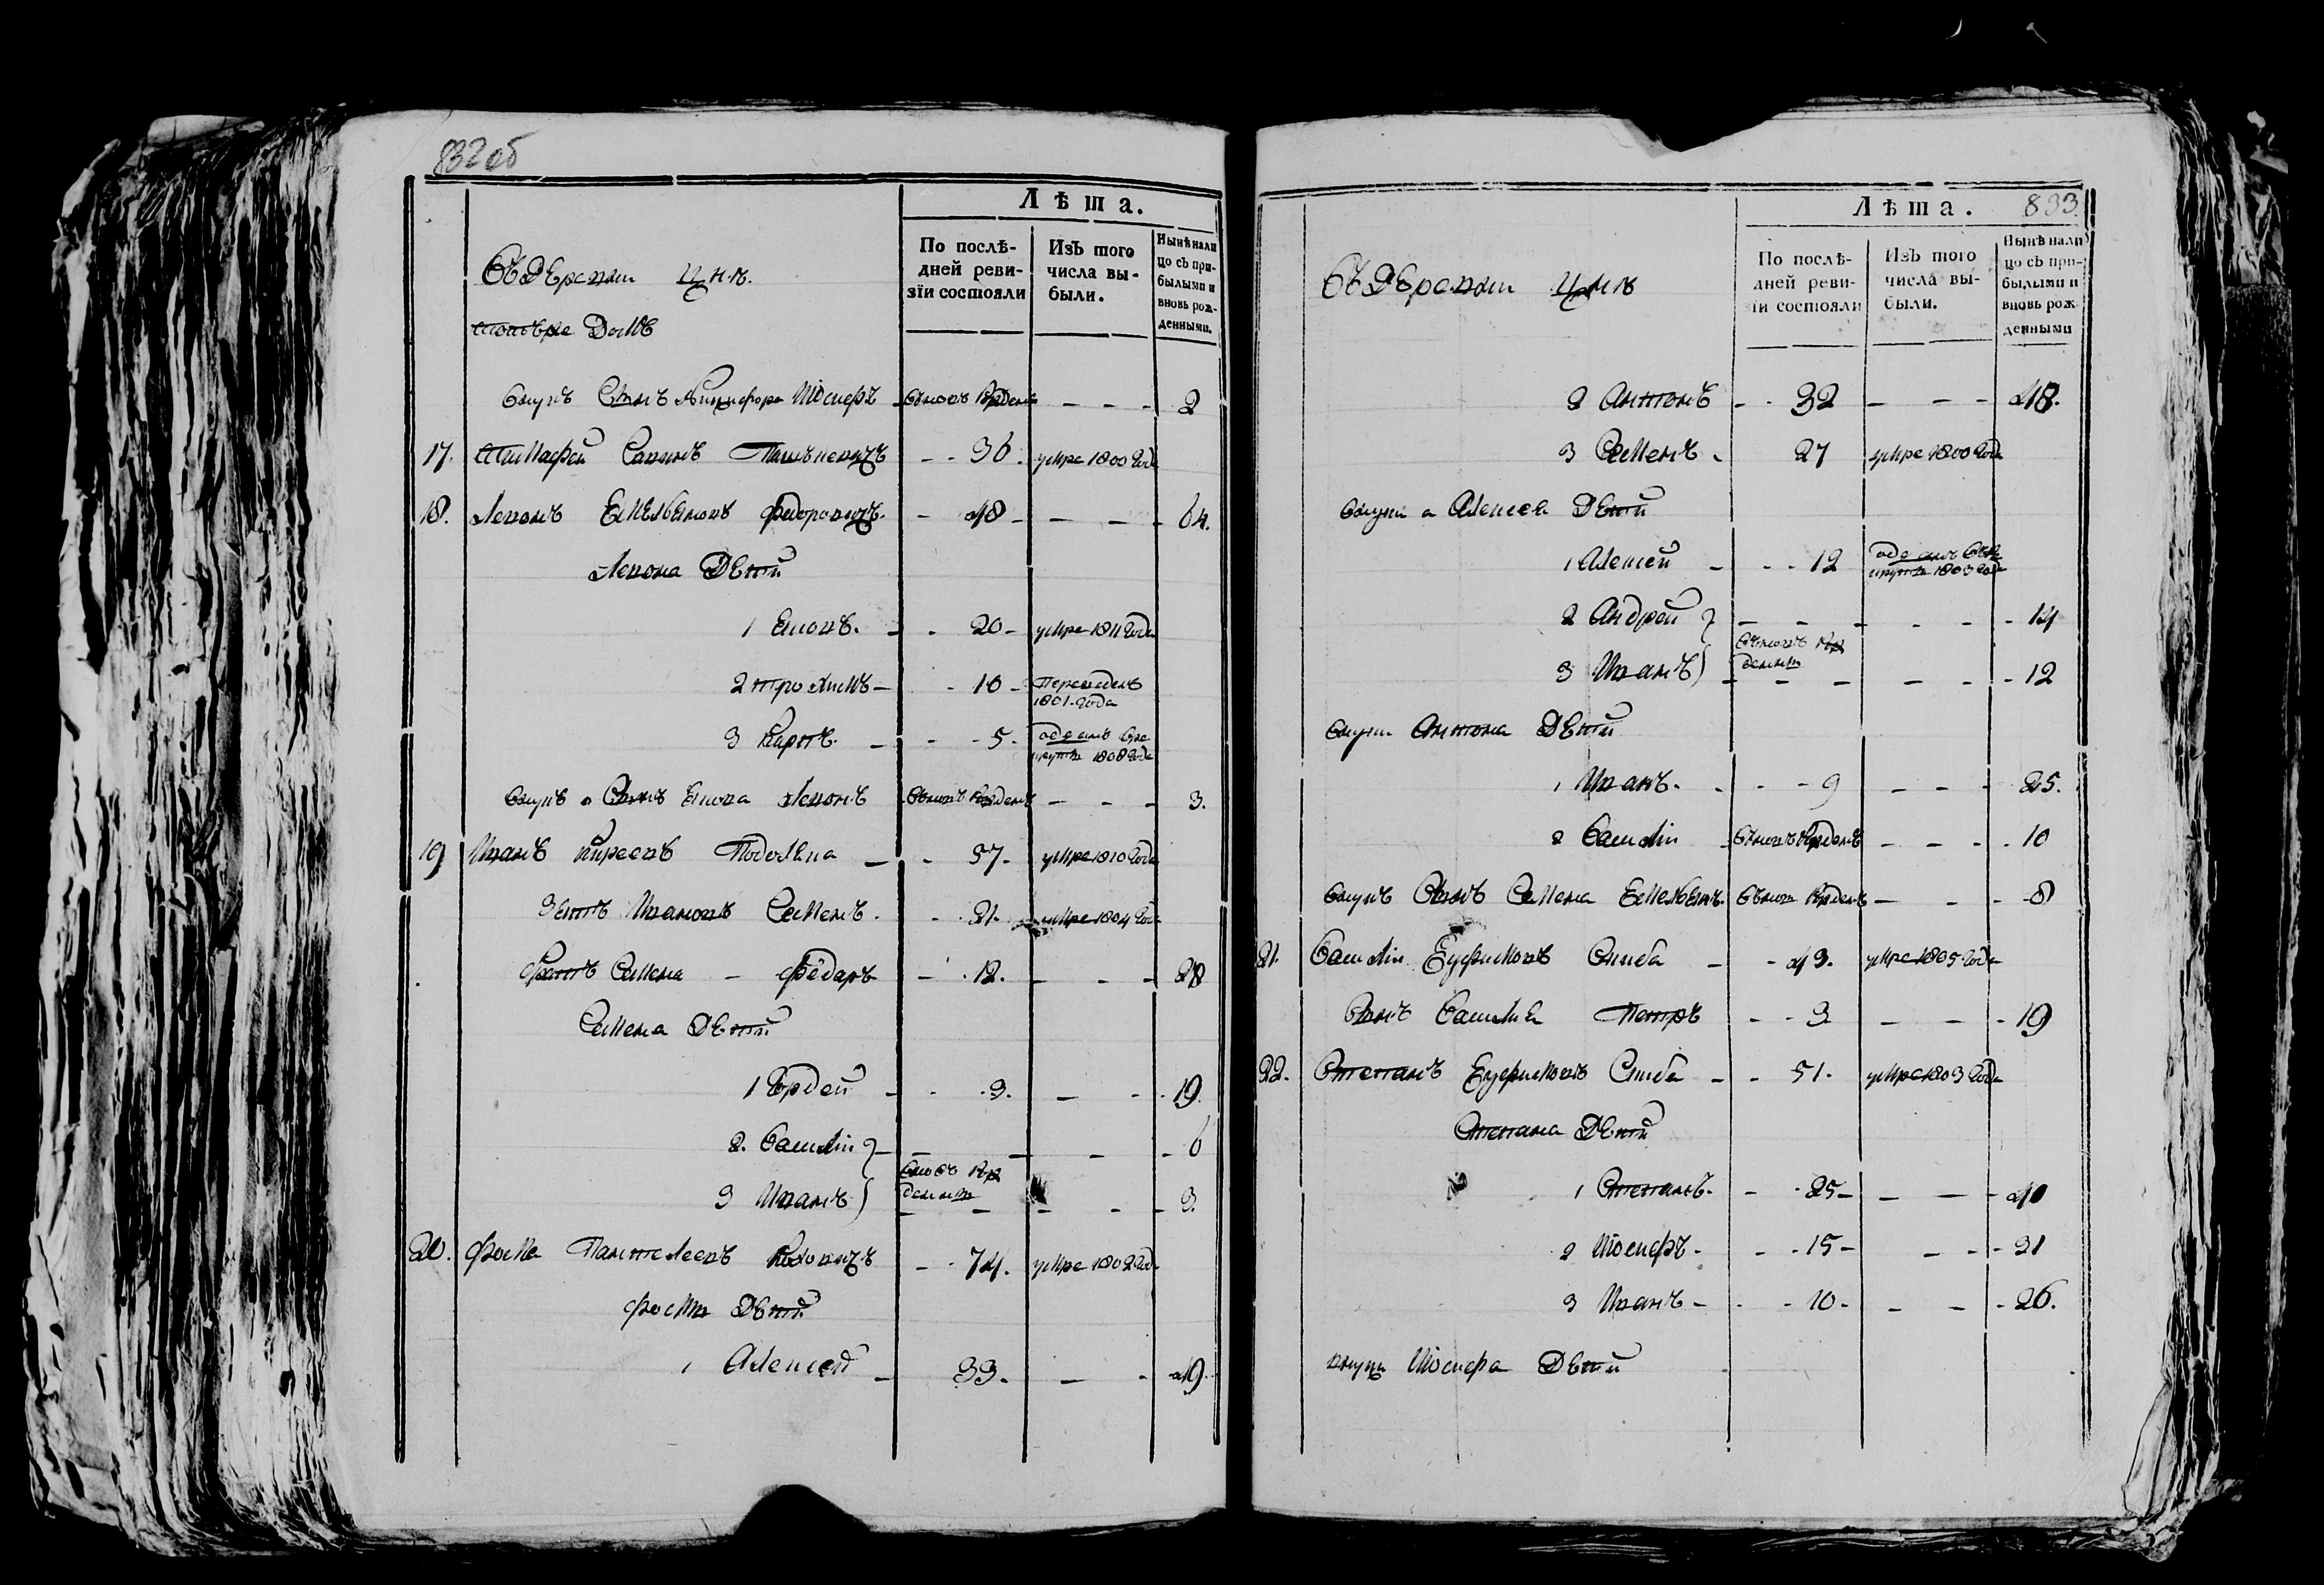 832об
Лѣта.
По послѣ-
дней реви-
зіи состояли
Изъ того
числа вы-
были.
Нынѣ нали
цо съ при-
былыми и
вновь рож-
денными.
Въ Деревни
Доме
внукъ Сынъ Никифора Іосифъ вновь Рожденъ — — — 2
17. Тимофей Савинъ — — 36. умре 1800 Года
18. Леонъ Емельяновъ Федоровичъ — 48 — — — 64.
Леона Дети
1 — 20 — умре 1811 Года
2 Трохимъ — 16 — Переведенъ
1801 Года
3 Карпъ — — 5. отданъ въ Ре
круты 1808 Года
внукъ Сынъ Леонъ вновь Рожденъ — — — 3.
19 Иванъ Киреевъ Подоляка — 57. умре 1810 Года
Зять Ивановъ Семенъ — 21. умре 1804 Года
Братъ Семена — Фёдаръ — 12. — — — 28
Семена Дети
1 Гордей — — 3. — — 19.
2. Василій — — — 6
вновь Рож
денны
3 Иванъ — — — — — 3.
20. Фома Пантелеевъ — 74. умре 1802 Года
Фомы Дети
1 Алексей — 33. — — 49.
Лѣта. 833
По послѣ-
дней реви-
зіи состояли
Изъ того
числа вы-
были.
Нынѣ нали
цо съ при-
былыми и
вновь рож-
денными
Въ Деревни
2 Антонъ — — 32 — — — 48.
3 Семенъ — 27 умре 1800 Года
внуки Алексея Дети
1 Алексей — — — 12 отданъ въ Ре
круты 1803 Года
2 Андрей — — — — — — 14
вновь Рож
денны
3 Иванъ — — — — — — 12
внуки Антона Дети
1 Иванъ. — — — 9 — — — 25.
2 Василій вновь Рожденъ — — — 10
внукъ Сынъ Семена Емельянъ вновь Рожденъ — — — 8
21. Василій Еуфимовъ — — 43. умре 1805 Года
Сынъ Василія Петръ — — 3 — — — 19
22. Степанъ Еуфимовъ — — 51. умре 1803 Года
Степана Дети
1 Степанъ. — — 25 — — — — 40
2 Іосифъ — — — 15 — — — — 31
3 Иванъ — — — 10 — — — — 26.
внукъ Іосифа Дети